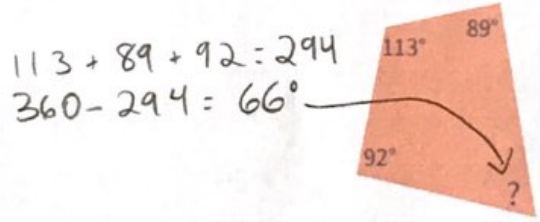 113 + 89 + 92 = 294
360 - 294 = 66°
113°
89°
92°
?